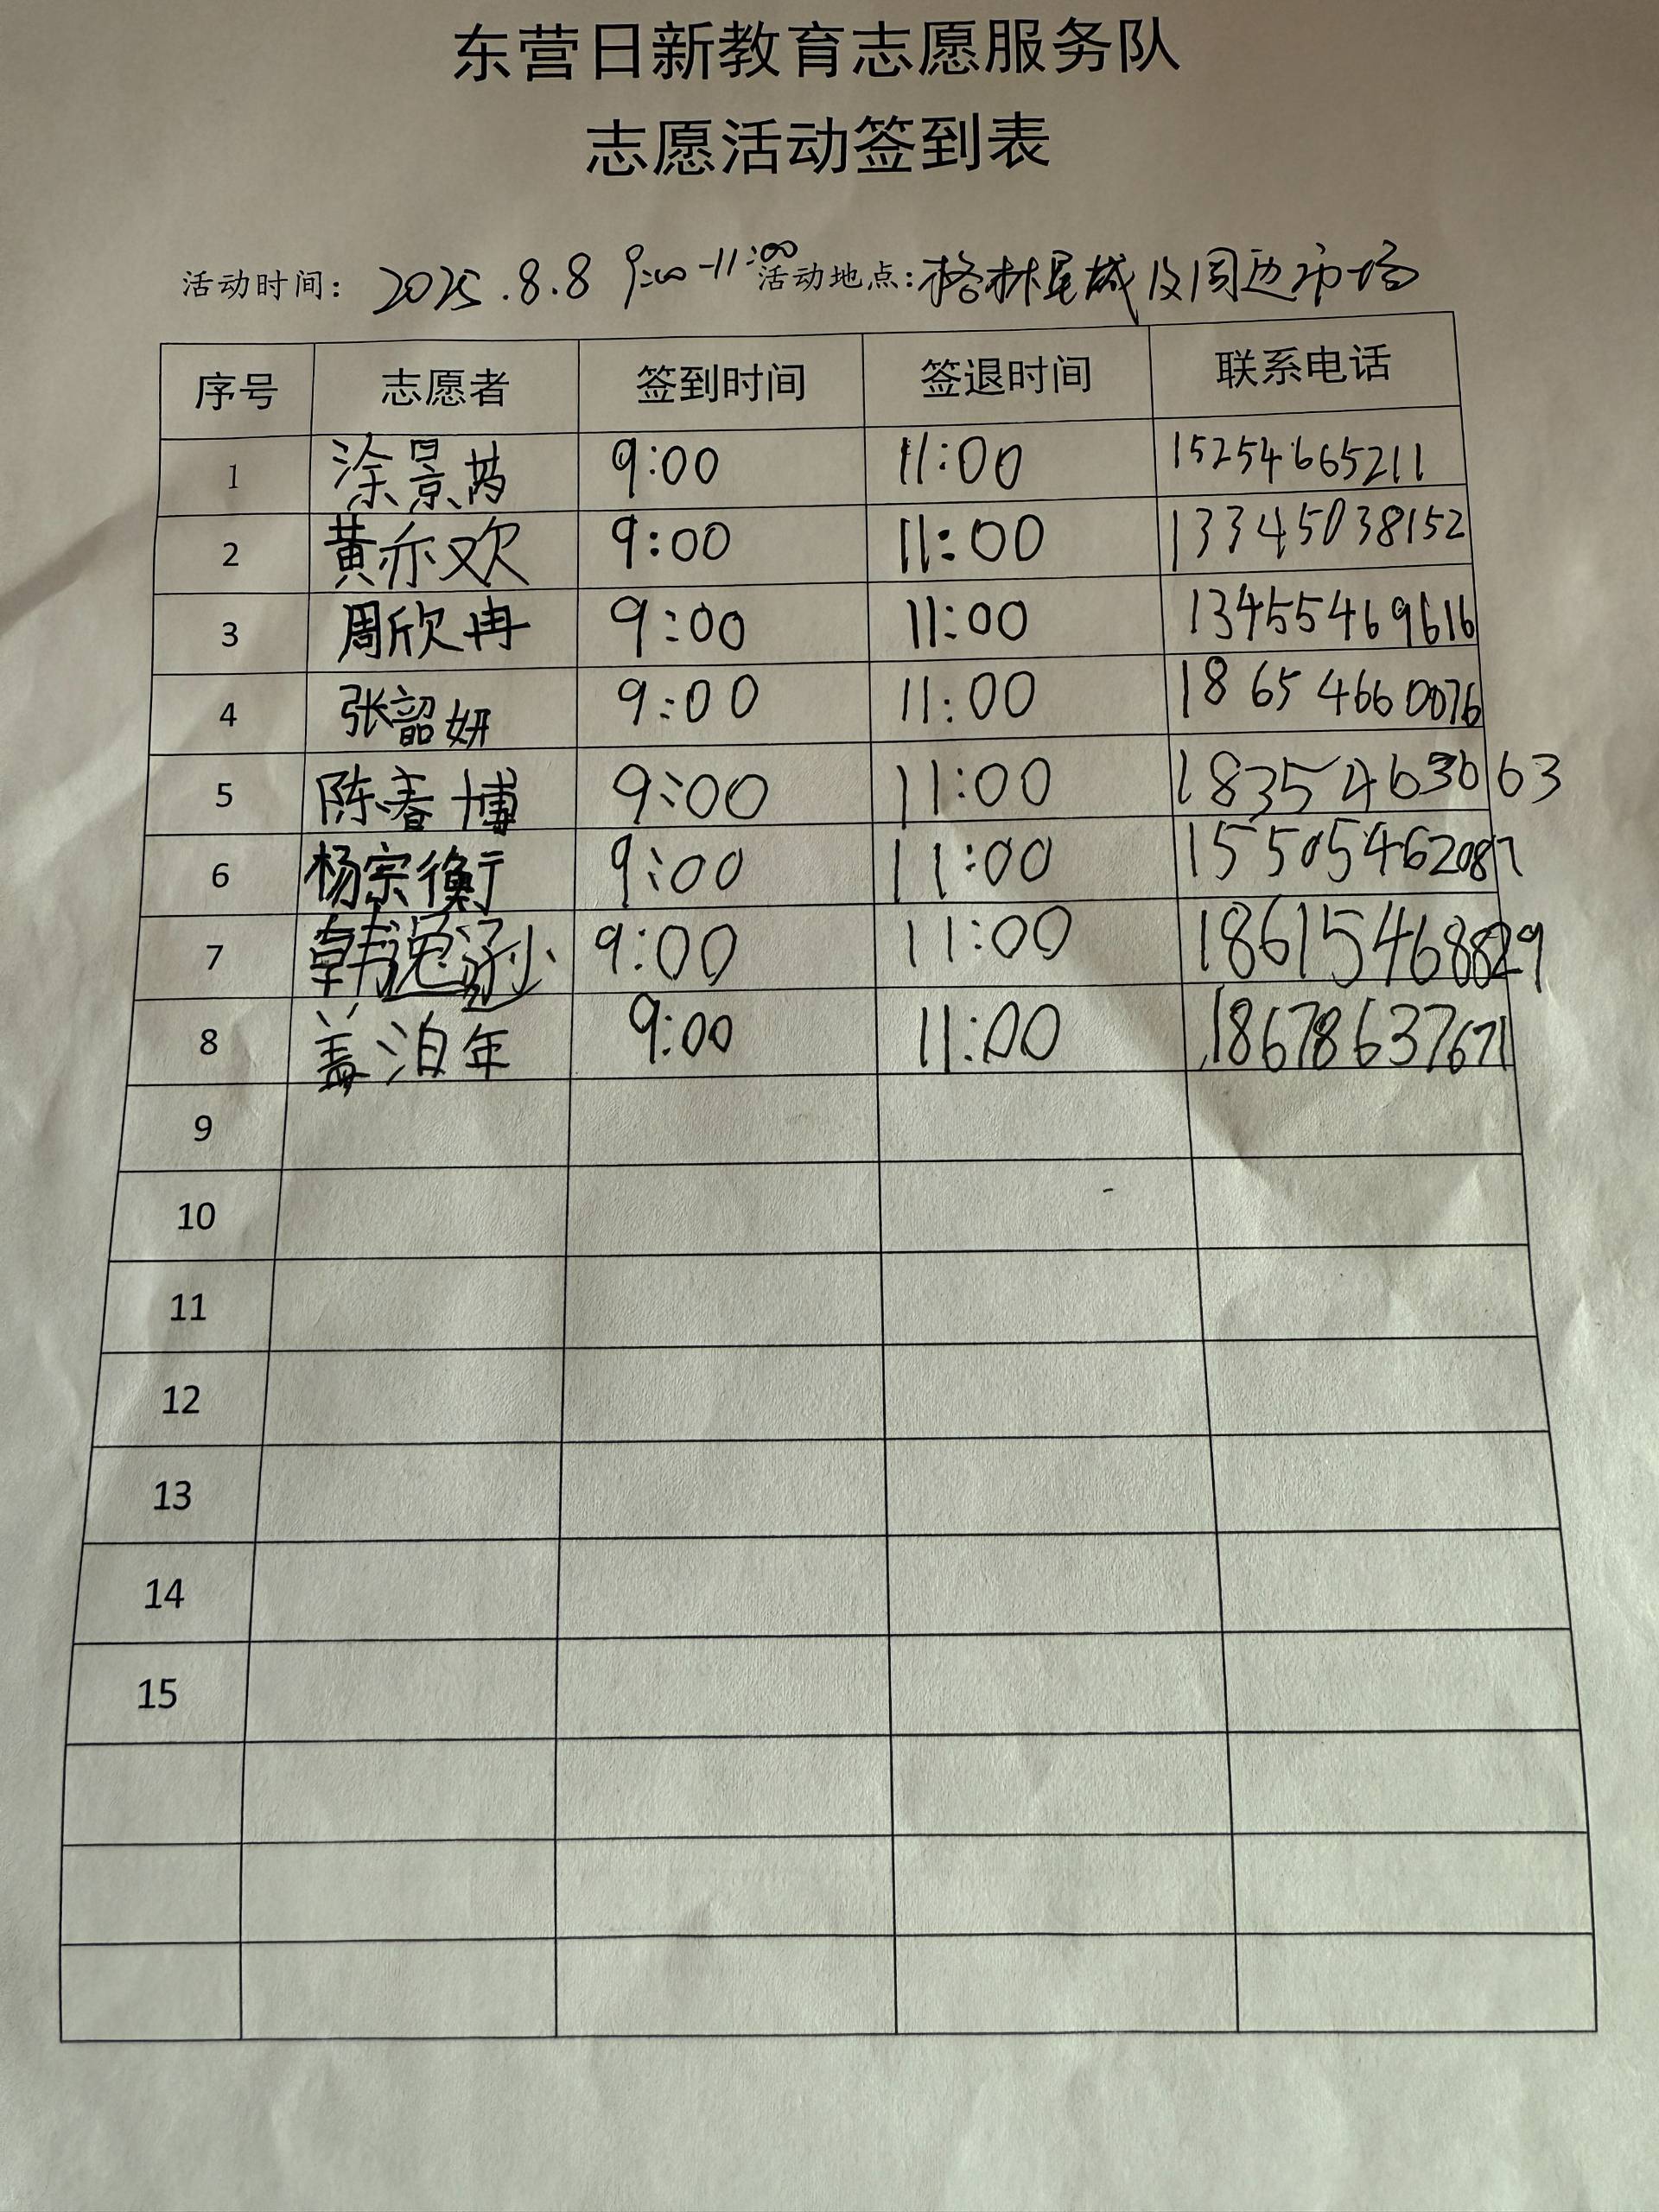 东营日新教育志愿服务队
志愿活动签到表
活动时间: 2025.8.8 9:00-11:00 活动地点: 格林星城及周边市场
序号 志愿者 签到时间 签退时间 联系电话
1 涂景芮 9:00 11:00 15254665211
2 黄亦欢 9:00 11:00 13345038152
3 周欣冉 9:00 11:00 13455469616
4 张韶妍 9:00 11:00 18654660076
5 陈春博 9:00 11:00 18354630163
6 杨宗衡 9:00 11:00 15505462087
7 韩逸涵 9:00 11:00 18615468829
8 盖泊年 9:00 11:00 18678637671
9
10
11
12
13
14
15